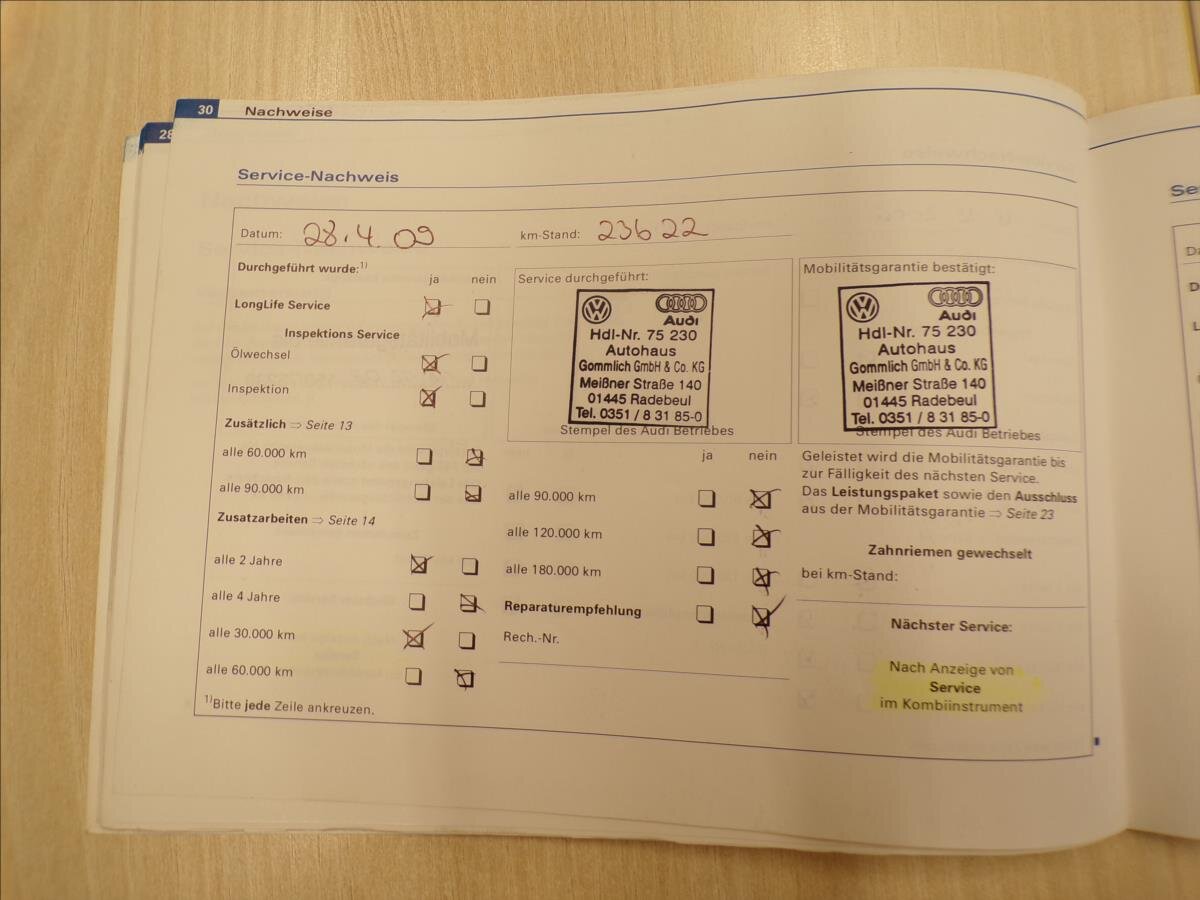 30 Nachweise
28
Service-Nachweis
Datum: 28.4.09 km-Stand: 23622
Durchgeführt wurde:1) ja nein
LongLife Service
Inspektions Service
Ölwechsel
Inspektion
Zusätzlich ⇒ Seite 13
alle 60.000 km
alle 90.000 km
Zusatzarbeiten ⇒ Seite 14
alle 2 Jahre
alle 4 Jahre
alle 30.000 km
alle 60.000 km
1)Bitte jede Zeile ankreuzen.
Service durchgeführt:
Audi
Hdl-Nr. 75 230
Autohaus
Gommlich GmbH & Co. KG
Meißner Straße 140
01445 Radebeul
Tel. 0351 / 8 31 85-0
Stempel des Audi Betriebes
ja nein
alle 90.000 km
alle 120.000 km
alle 180.000 km
Reparaturempfehlung
Rech.-Nr.
Mobilitätsgarantie bestätigt:
Audi
Hdl-Nr. 75 230
Autohaus
Gommlich GmbH & Co. KG
Meißner Straße 140
01445 Radebeul
Tel. 0351 / 8 31 85-0
Stempel des Audi Betriebes
Geleistet wird die Mobilitätsgarantie bis
zur Fälligkeit des nächsten Service.
Das Leistungspaket sowie den Ausschluss
aus der Mobilitätsgarantie ⇒ Seite 23
Zahnriemen gewechselt
bei km-Stand:
Nächster Service:
Nach Anzeige von
Service
im Kombiinstrument